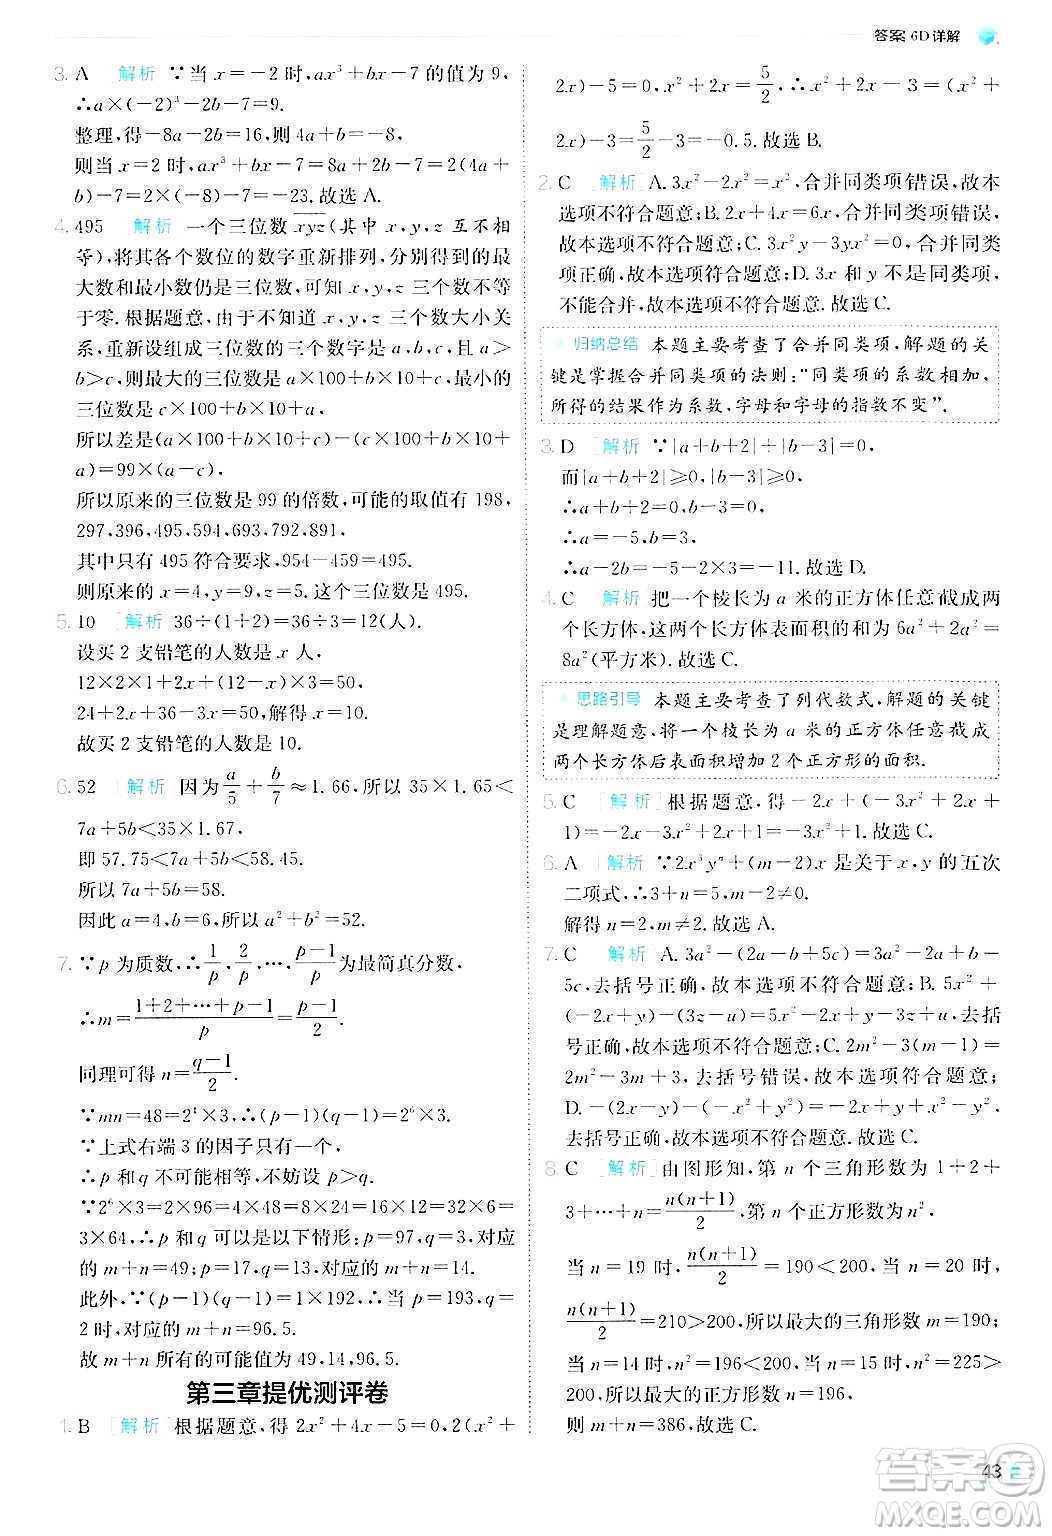 答案 6D详解
3. A [解析] ∵当 x=-2 时,ax³+bx-7 的值为 9,
∴a×(-2)³-2b-7=9.
整理,得-8a-2b=16,则 4a+b=-8,
则当 x=2 时,ax³+bx-7=8a+2b-7=2(4a+
b)-7=2×(-8)-7=-23.故选 A.
4. 495 [解析] 一个三位数 xyz(其中 x,y,z 互不相
等),将其各个数位的数字重新排列,分别得到的最
大数和最小数仍是三位数,可知 x,y,z 三个数不等
于零.根据题意,由于不知道 x,y,z 三个数大小关
系,重新设组成三位数的三个数字是 a,b,c,且 a>
b>c,则最大的三位数是 a×100+b×10+c,最小的
三位数是 c×100+b×10+a,
所以差是(a×100+b×10+c)-(c×100+b×10+
a)=99×(a-c).
所以原来的三位数是 99 的倍数,可能的取值有 198,
297,396,495,594,693,792,891,
其中只有 495 符合要求,954-459=495.
则原来的 x=4,y=9,z=5.这个三位数是 495.
5. 10 [解析] 36÷(1+2)=36÷3=12(人).
设买 2 支铅笔的人数是 x 人,
12×2+2x+(12-x)×3=50,
24+2x+36-3x=50,解得 x=10.
故买 2 支铅笔的人数是 10.
6. 52 [解析] 因为 a/5+b/7≈1.66,所以 35×1.65<
7a+5b<35×1.67,
即 57.75<7a+5b<58.45.
所以 7a+5b=58.
因此 a=4,b=6,所以 a²+b²=52.
7. ∵p 为质数,∴1/p,2/p,…,(p-1)/p 为最简真分数,
∴m=(1+2+…+p-1)/p=(p-1)/2.
同理可得 n=(q-1)/2.
∵mn=48=2⁴×3,∴(p-1)(q-1)=2⁶×3.
∵上式右端 3 的因子只有一个,
∴p 和 q 不可能相等,不妨设 p>q.
∵2⁶×3=2×96=4×48=8×24=16×12=32×6=
3×64,∴p 和 q 可以是以下情形:p=97,q=3,对应
的 m+n=49;p=17,q=13,对应的 m+n=14.
此外,2⁶×3=1×192,∴当 p=193,q=
2 时,对应的 m+n=96.5.
故 m+n 所有的可能值为 49,14,96.5.
第三章提优测评卷
1. B [解析] 根据题意,得 2x²+4x-5=0,2(x²+
2x)-5=0,x²+2x=5/2,∴x²+2x-3=(x²+
2x)-3=5/2-3=-0.5.故选 B.
2. C [解析] A.3x²-2x²=x²,合并同类项错误,故本
选项不符合题意;B.2x+4x=6x,合并同类项错误,
故本选项不符合题意;C.3x²y-3yx²=0,合并同类
项正确,故本选项符合题意;D.3x 和 y 不是同类项,
不能合并,故本选项不符合题意.故选 C.
归纳总结 本题主要考查了合并同类项,解题的关
键是掌握合并同类项的法则:“同类项的系数相加,
所得的结果作为系数,字母和字母的指数不变”.
3. D [解析] ∵|a+b+2|+|b-3|=0,
而|a+b+2|≥0,|b-3|≥0,
∴a+b+2=0,b-3=0,
∴a=-5,b=3,
∴a-2b=-5-2×3=-11.故选 D.
4. C [解析] 把一个棱长为 a 米的正方体任意截成两
个长方体,这两个长方体表面积的和为 6a²+2a²=
8a²(平方米).故选 C.
思路引导 本题主要考查了列代数式,解题的关键
是理解题意,将一个棱长为 a 米的正方体任意截成
两个长方体后表面积增加 2 个正方形的面积.
5. C [解析] 根据题意,得-2x-(-3x²+2x+
1)=-2x+3x²-2x-1=3x²-4x-1.故选 C.
6. A [解析] ∵2x³yⁿ+(m-2)x 是关于 x,y 的五次
二项式,∴3+n=5,m-2≠0.
解得 n=2,m≠2.故选 A.
7. C [解析] A.3a²-(2a-b+5c)=3a²-2a+b-
5c,去括号正确,故本选项不符合题意;B.5x²+
(-2x+y)-(3z-u)=5x²-2x+y-3z+u,去括
号正确,故本选项不符合题意;C.2m²-3(m-1)=
2m²-3m+3,去括号错误,故本选项符合题意;
D.-(2x-y)-(-x²+y²)=-2x+y+x²-y²,
去括号正确,故本选项不符合题意.故选 C.
8. C [解析] 由图形知,第 n 个三角形数为 1+2+
3+…+n=n(n+1)/2,第 n 个正方形数为 n²,
当 n=19 时,n(n+1)/2=190<200,当 n=20 时,
n(n+1)/2=210>200,所以最大的三角形数 m=190;
当 n=14 时,n²=196<200,当 n=15 时,n²=225>
200,所以最大的正方形数 n=196,
则 m+n=386,故选 C.
43
答案圈
MXQE.COM